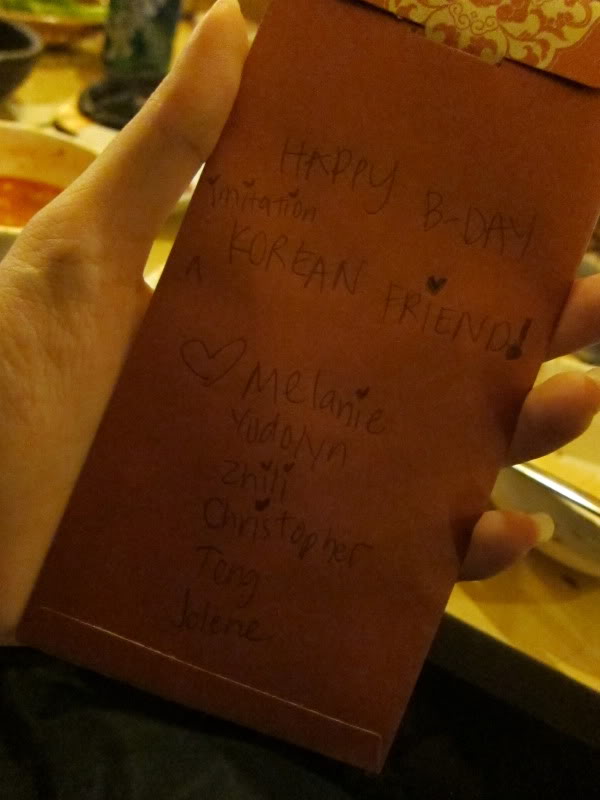 HAPPY B-DAY
imitation
^ KOREAN FRIEND!
Melanie
YudoNn
Zhili
Christopher
Tong
Jolene